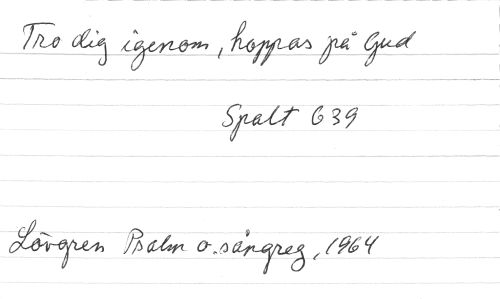 Tro dig igenom, hoppas på Gud
Spalt 639
Lövgren Psalm o. sångreg, 1964